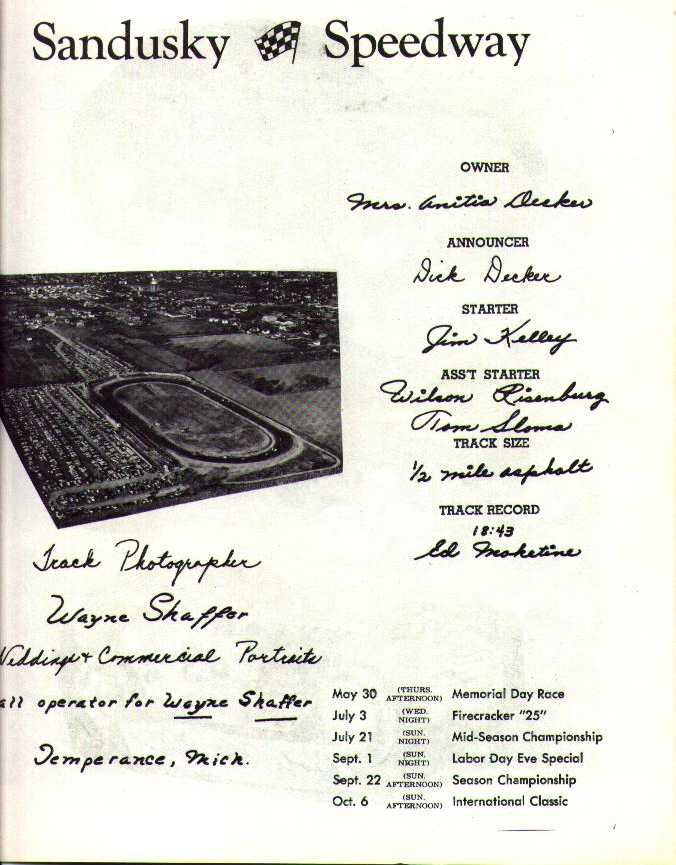 Sandusky Speedway
OWNER
Mrs. Anitia Decker
ANNOUNCER
Dick Decker
STARTER
Jim Kelley
ASS'T STARTER
Wilson Risenburg
Tom Sloma
TRACK SIZE
1/2 mile asphalt
TRACK RECORD
18:43
Ed
Track Photographer
Wayne Shaffer
Weddings + Commercial Portraits
all operator for Wayne Shaffer
Temperance, Mich.
May 30 (THURS. AFTERNOON) Memorial Day Race
July 3 (WED. NIGHT) Firecracker "25"
July 21 (SUN. NIGHT) Mid-Season Championship
Sept. 1 (SUN. NIGHT) Labor Day Eve Special
Sept. 22 (SUN. AFTERNOON) Season Championship
Oct. 6 (SUN. AFTERNOON) International Classic